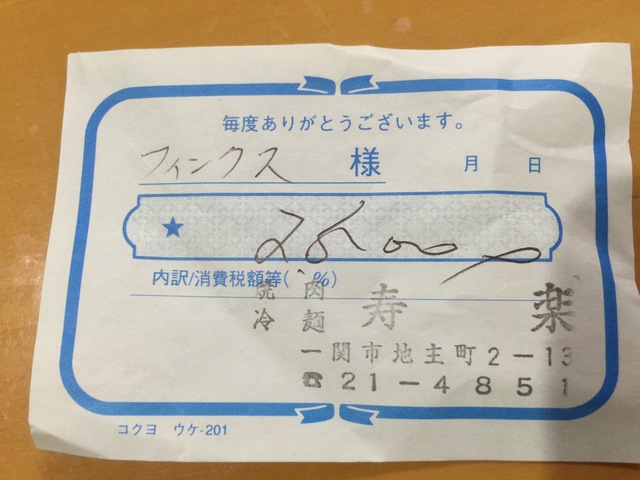 毎度ありがとうございます。
フィンクス 様 月 日
★
内訳/消費税額等( %)
焼肉 寿楽
冷麺
一関市地主町2-13
☎21-4851
コクヨ ウケ-201